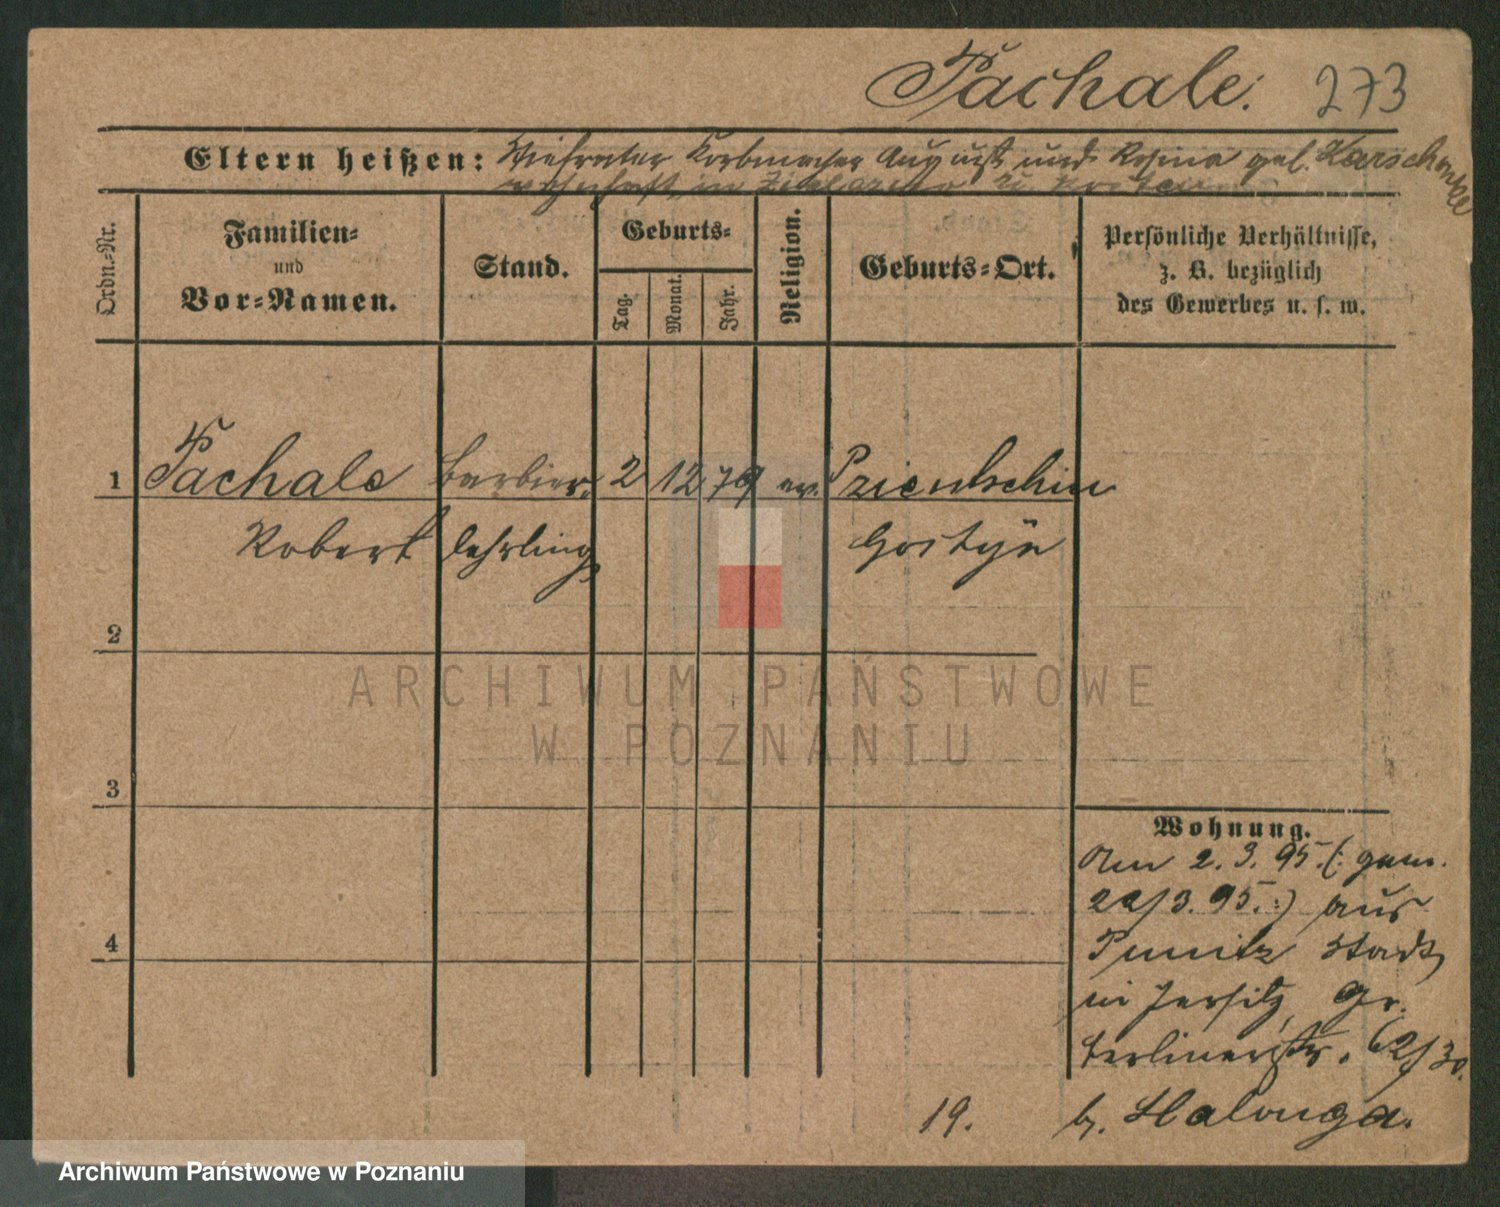 Pachale. 273
Eltern heißen: Korbmacher August und Rosina geb. Karschunke
wohnhaft in
Ordn.-Nr.
Familien-
und
Vor-Namen.
Stand.
Geburts-
Tag.
Monat.
Jahr.
Religion.
Geburts-Ort.
Persönliche Verhältnisse,
z. B. bezüglich
des Gewerbes u. s. w.
1 Pachale Barbier 2 12 79 ev. Pzientschin
Robert lehrling Gostyn
2
3
4
Wohnung.
Am 2. 3. 95. (: gem.
22/3. 95. :) aus
Punitz Stadt
in Jersitz, Gr.
Berlinerstr. 62/30.
19. b. Halonga.
ARCHIWUM PAŃSTWOWE
W POZNANIU
Archiwum Państwowe w Poznaniu